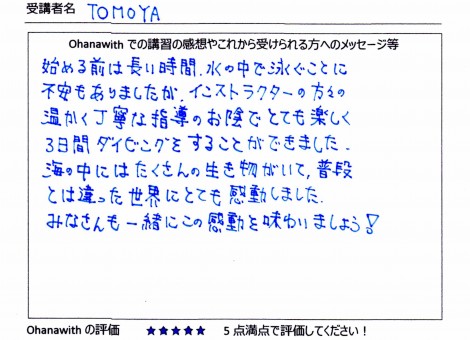 受講者名 TOMOYA
Ohanawith での講習の感想やこれから受けられる方へのメッセージ等
始める前は長い時間、水の中で泳ぐことに
不安もありましたが、インストラクターの方々の
温かく丁寧な指導のお陰でとても楽しく
3日間ダイビングをすることができました。
海の中にはたくさんの生き物がいて、普段
とは違った世界にとても感動しました。
みなさんも一緒にこの感動を味わいましょう!
Ohanawith の評価 ★★★★★ 5 点満点で評価してください!